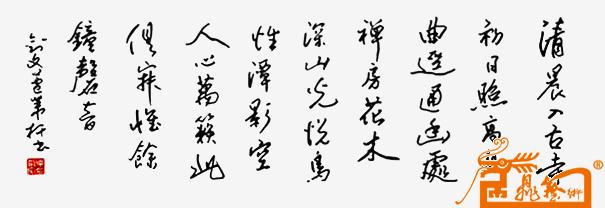 清晨入古寺
初日照高
曲迳通幽處
禅房花木
深山光悦鳥
性潭影空
人心萬籟此
俱寂惟餘
鐘磬音